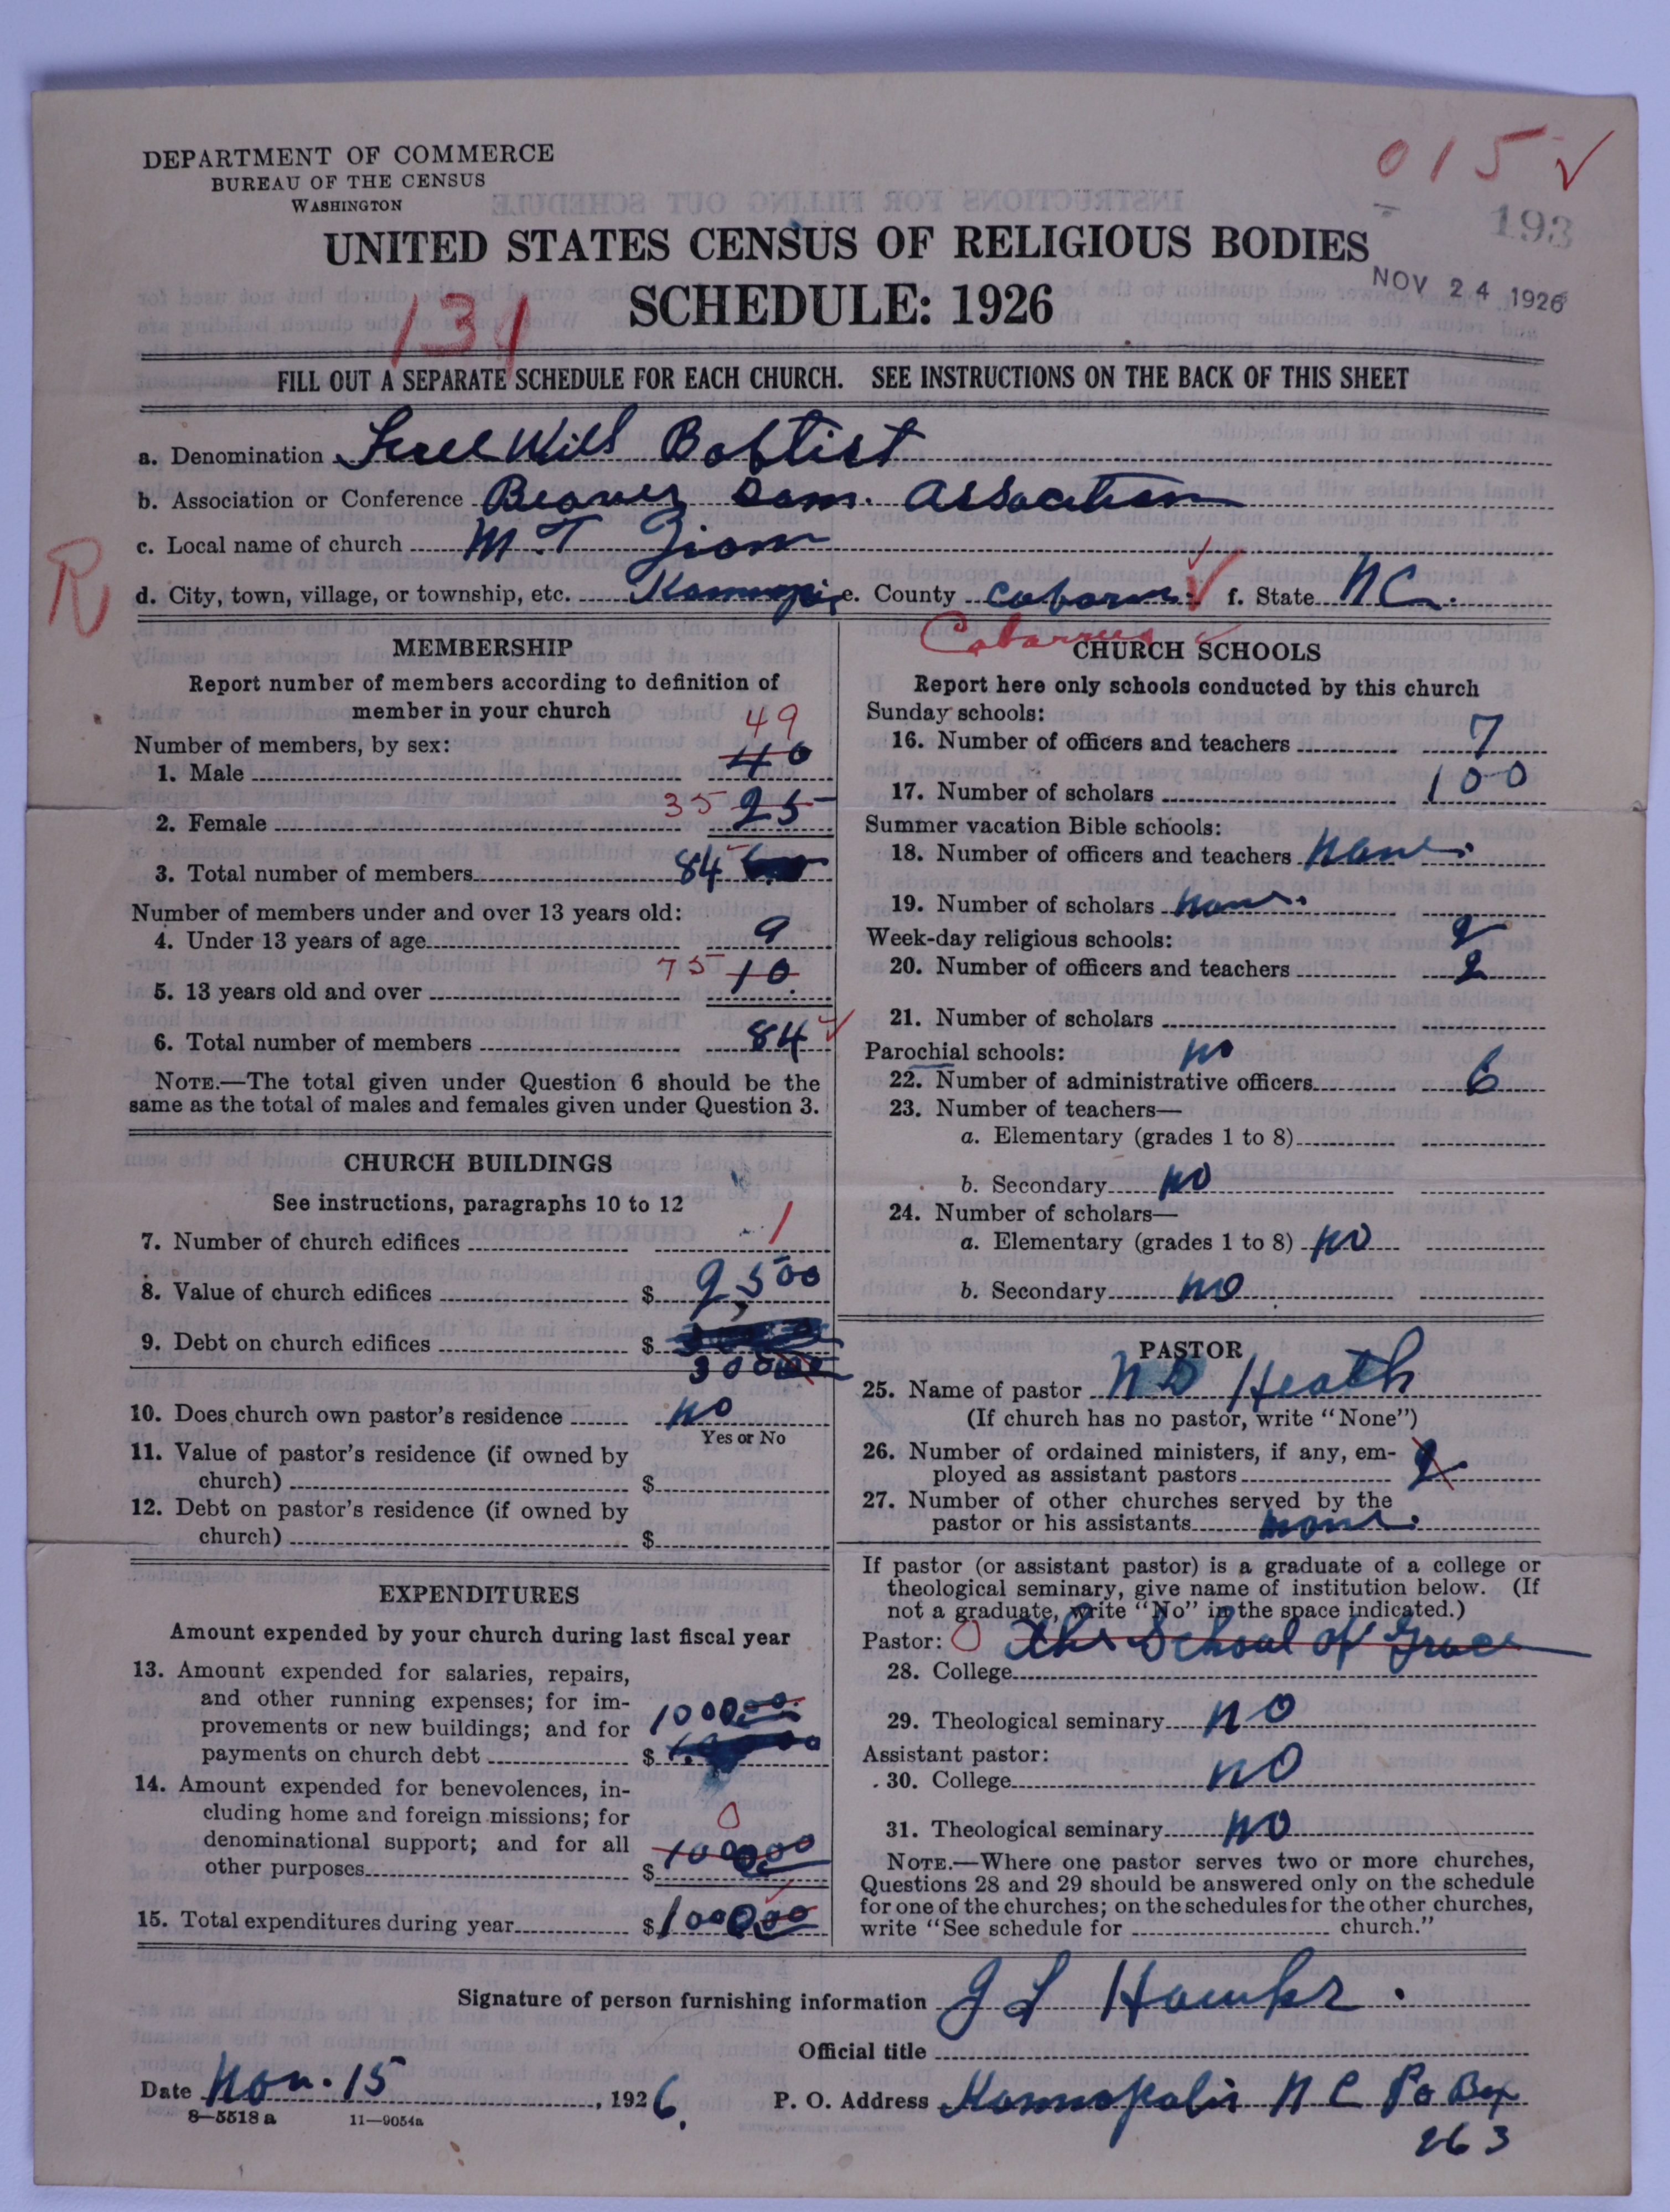 015 ✓
DEPARTMENT OF COMMERCE
BUREAU OF THE CENSUS
WASHINGTON
193
UNITED STATES CENSUS OF RELIGIOUS BODIES
NOV 24 1926
131
SCHEDULE: 1926
FILL OUT A SEPARATE SCHEDULE FOR EACH CHURCH. SEE INSTRUCTIONS ON THE BACK OF THIS SHEET
a. Denomination Free Will Baptist
b. Association or Conference Beaver Dam. Association
c. Local name of church M.T Zion
R
d. City, town, village, or township, etc. e. County f. State NC.
Cabarrus
MEMBERSHIP
Report number of members according to definition of
member in your church
49
Number of members, by sex:
1. Male 40
2. Female 35 25
3. Total number of members 84
Number of members under and over 13 years old:
4. Under 13 years of age 9
5. 13 years old and over 75 10
6. Total number of members 84 ✓
NOTE.—The total given under Question 6 should be the
same as the total of males and females given under Question 3.
CHURCH BUILDINGS
See instructions, paragraphs 10 to 12
7. Number of church edifices 1
8. Value of church edifices $ 2,500
9. Debt on church edifices $
300
10. Does church own pastor's residence no
Yes or No
11. Value of pastor's residence (if owned by
church) $
12. Debt on pastor's residence (if owned by
church) $
EXPENDITURES
Amount expended by your church during last fiscal year
13. Amount expended for salaries, repairs,
and other running expenses; for im-
provements or new buildings; and for 1000.00
payments on church debt $
14. Amount expended for benevolences, in-
cluding home and foreign missions; for 0
denominational support; and for all
other purposes $ 1000.00
15. Total expenditures during year $1000.00
CHURCH SCHOOLS
Report here only schools conducted by this church
Sunday schools:
16. Number of officers and teachers 7
17. Number of scholars 100
Summer vacation Bible schools:
18. Number of officers and teachers None.
19. Number of scholars none.
Week-day religious schools: 2
20. Number of officers and teachers 2
21. Number of scholars
Parochial schools: no
22. Number of administrative officers 6
23. Number of teachers—
a. Elementary (grades 1 to 8)
b. Secondary no
24. Number of scholars—
a. Elementary (grades 1 to 8) no
b. Secondary no
PASTOR
25. Name of pastor N D Heath
(If church has no pastor, write "None")
26. Number of ordained ministers, if any, em-
ployed as assistant pastors 2
27. Number of other churches served by the
pastor or his assistants none.
If pastor (or assistant pastor) is a graduate of a college or
theological seminary, give name of institution below. (If
not a graduate, write "No" in the space indicated.)
Pastor: 0 The School of Grace
28. College
29. Theological seminary no
Assistant pastor:
30. College no
31. Theological seminary no
NOTE.—Where one pastor serves two or more churches,
Questions 28 and 29 should be answered only on the schedule
for one of the churches; on the schedules for the other churches,
write "See schedule for church."
Signature of person furnishing information J L
Official title
Date Nov. 15, 1926. P. O. Address Kannapolis N C Po Box
263
8—5518 a 11—9054a